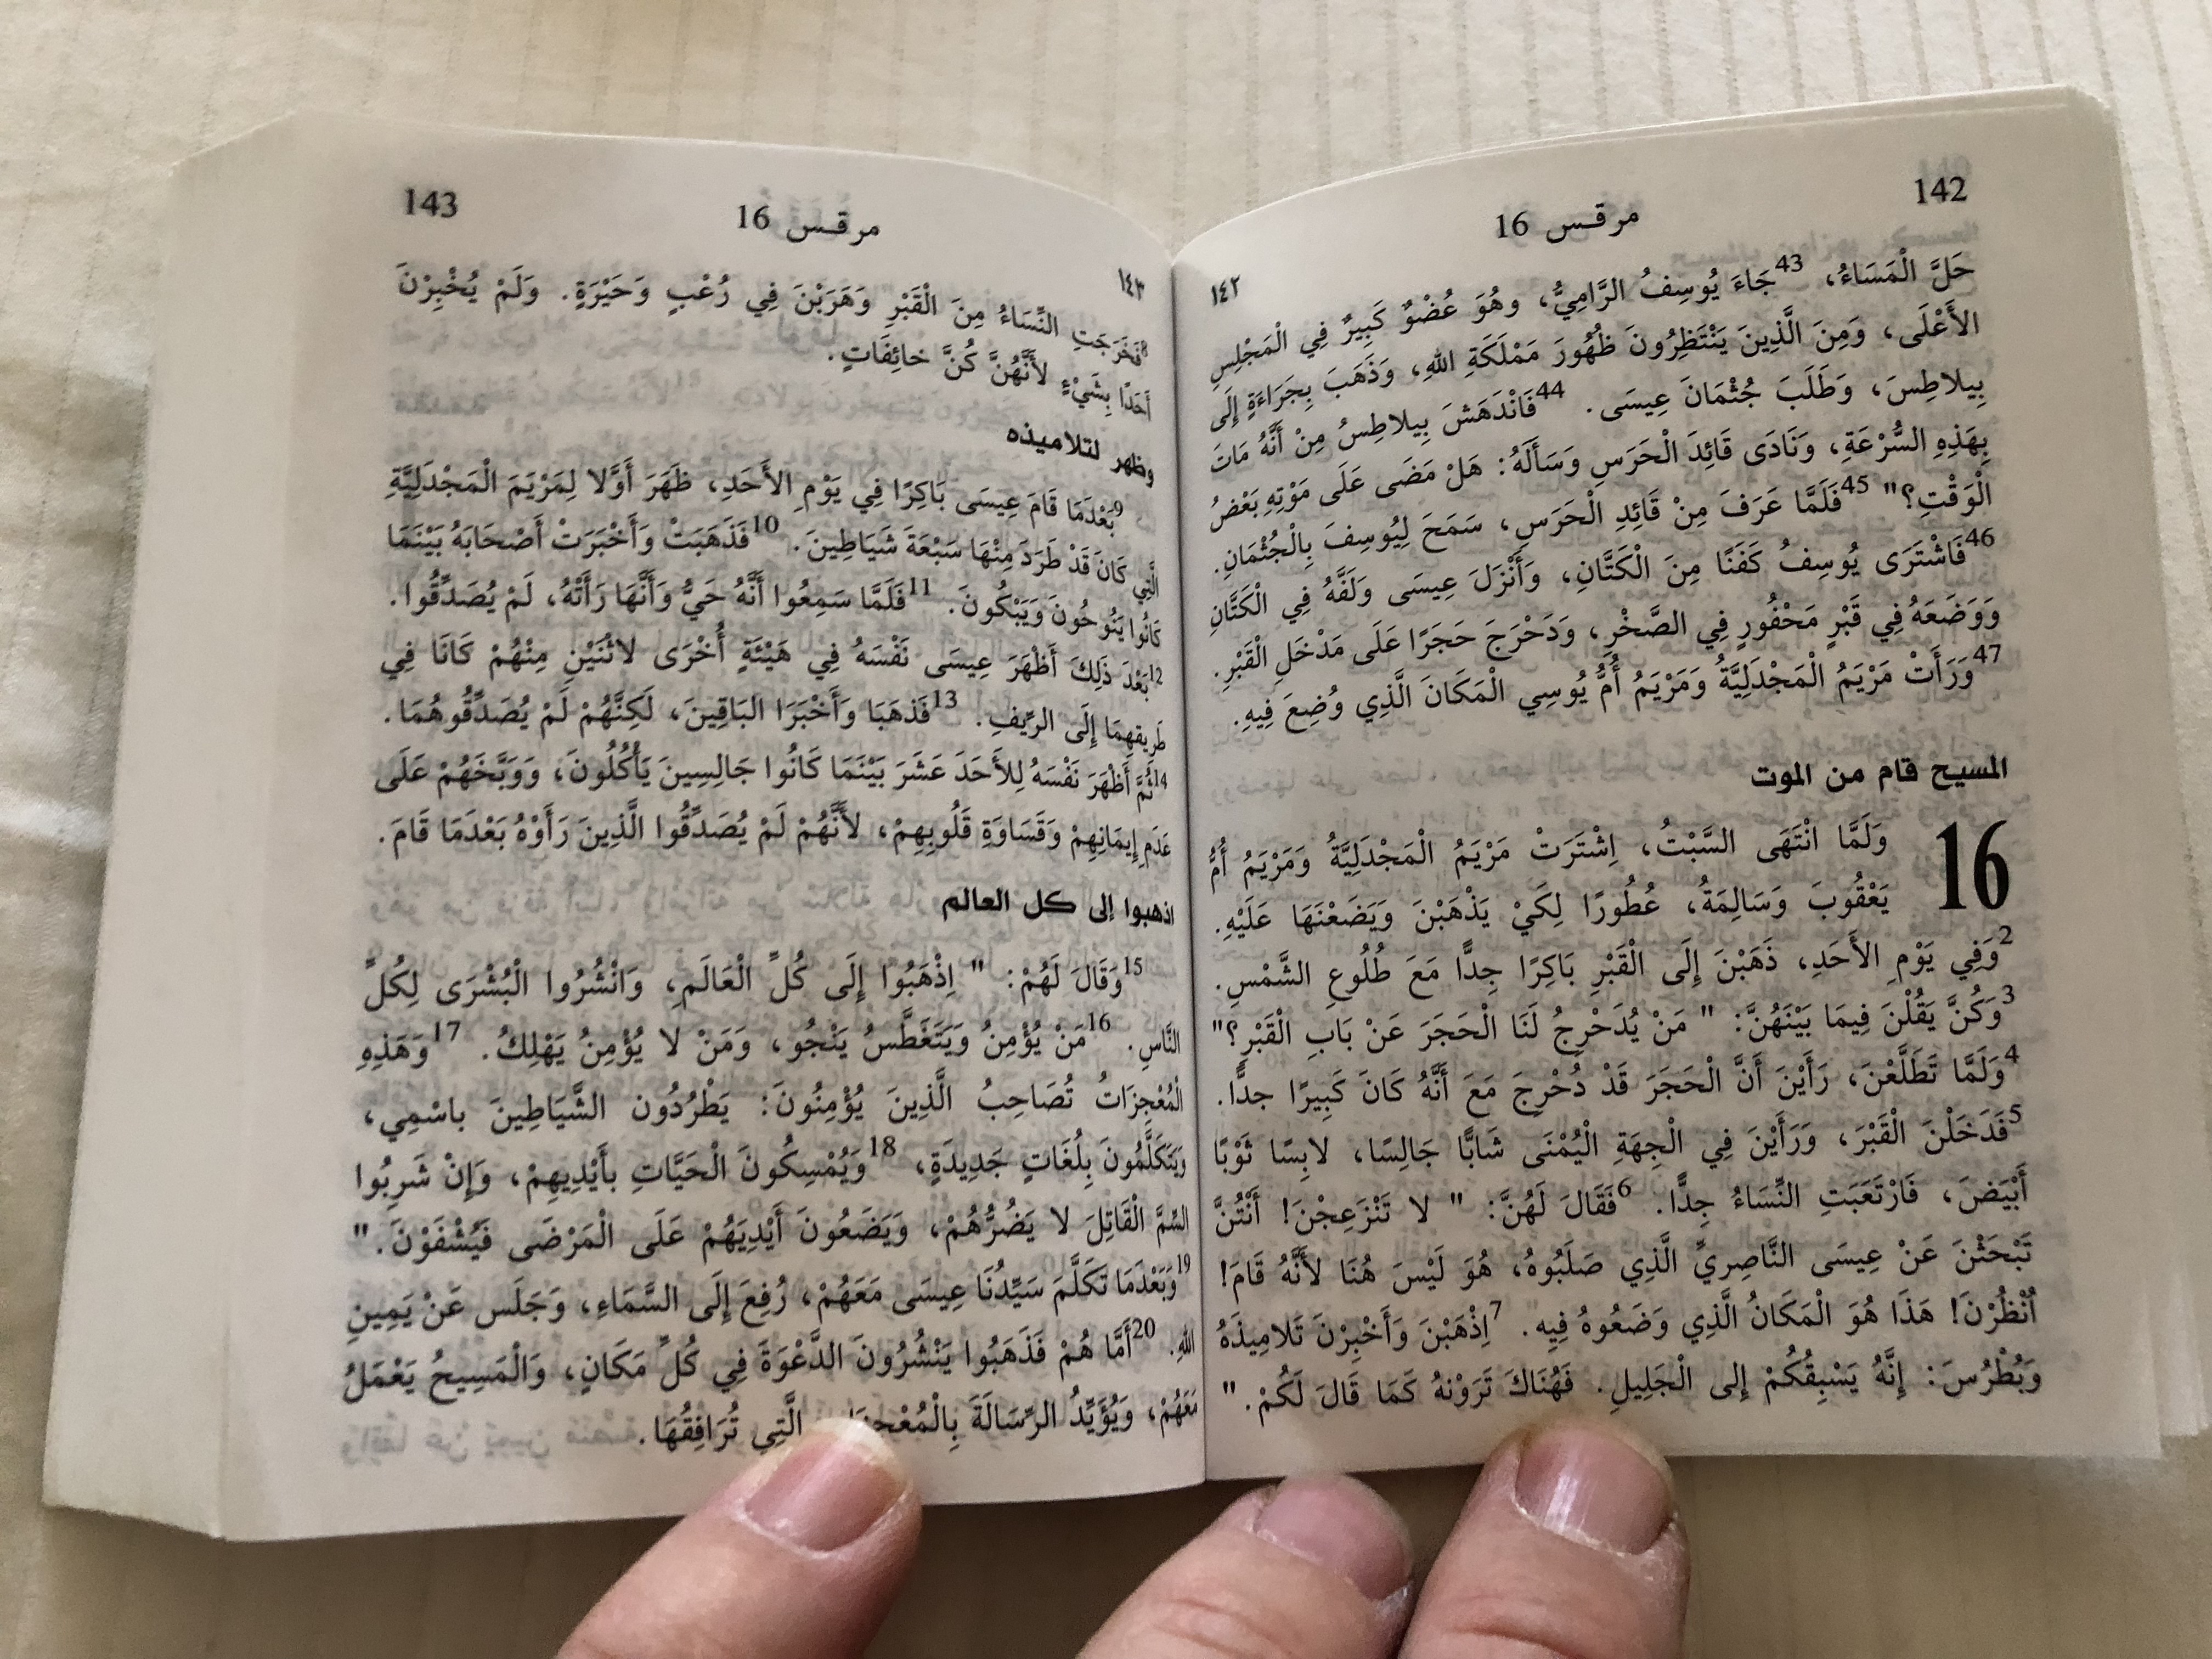 142
مرقس 16
١٤٢
حَلَّ الْمَسَاءُ، 43جَاءَ يُوسِفُ الرَّامِيُّ، وهُوَ عُضْوٌ كَبِيرٌ فِي الْمَجْلِسِ
الأَعْلَى، وَمِنَ الَّذِينَ يَنْتَظِرُونَ ظُهُورَ مَمْلَكَةِ اللهِ، وَذَهَبَ بِجَرَاءَةٍ إِلَى
بِيلاطِسَ، وَطَلَبَ جُثْمَانَ عِيسَى. 44فَانْدَهَشَ بِيلاطِسُ مِنْ أَنَّهُ مَاتَ
بِهَذِهِ السُّرْعَةِ، وَنَادَى قَائِدَ الْحَرَسِ وَسَأَلَهُ: هَلْ مَضَى عَلَى مَوْتِهِ بَعْضُ
الْوَقْتِ؟" 45فَلَمَّا عَرَفَ مِنْ قَائِدِ الْحَرَسِ، سَمَحَ لِيُوسِفَ بِالْجُثْمَانِ.
46فَاشْتَرَى يُوسِفُ كَفَنًا مِنَ الْكَتَّانِ، وَأَنْزَلَ عِيسَى وَلَفَّهُ فِي الْكَتَّانِ
وَوَضَعَهُ فِي قَبْرٍ مَحْفُورٍ فِي الصَّخْرِ، وَدَحْرَجَ حَجَرًا عَلَى مَدْخَلِ الْقَبْرِ.
47وَرَأَتْ مَرْيَمُ الْمَجْدَلِيَّةُ وَمَرْيَمُ أُمُّ يُوسِي الْمَكَانَ الَّذِي وُضِعَ فِيهِ.
المسيح قام من الموت
16 وَلَمَّا انْتَهَى السَّبْتُ، اِشْتَرَتْ مَرْيَمُ الْمَجْدَلِيَّةُ وَمَرْيَمُ أُمُّ
يَعْقُوبَ وَسَالِمَةُ، عُطُورًا لِكَيْ يَذْهَبْنَ وَيَضَعْنَهَا عَلَيْهِ.
2وَفِي يَوْمِ الأَحَدِ، ذَهَبْنَ إِلَى الْقَبْرِ بَاكِرًا جِدًّا مَعَ طُلُوعِ الشَّمْسِ.
3وَكُنَّ يَقُلْنَ فِيمَا بَيْنَهُنَّ: " مَنْ يُدَحْرِجُ لَنَا الْحَجَرَ عَنْ بَابِ الْقَبْرِ؟"
4وَلَمَّا تَطَلَّعْنَ، رَأَيْنَ أَنَّ الْحَجَرَ قَدْ دُحْرِجَ مَعَ أَنَّهُ كَانَ كَبِيرًا جدًّا.
5فَدَخَلْنَ الْقَبْرَ، وَرَأَيْنَ فِي الْجِهَةِ الْيُمْنَى شَابًّا جَالِسًا، لابِسًا ثَوْبًا
أَبْيَضَ، فَارْتَعَبَتِ النِّسَاءُ جِدًّا. 6فَقَالَ لَهُنَّ: " لا تَنْزَعِجْنَ! أَنْتُنَّ
تَبْحَثْنَ عَنْ عِيسَى النَّاصِرِيِّ الَّذِي صَلَبُوهُ، هُوَ لَيْسَ هُنَا لأَنَّهُ قَامَ!
اُنْظُرْنَ! هَذَا هُوَ الْمَكَانُ الَّذِي وَضَعُوهُ فِيهِ. 7اِذْهَبْنَ وَأَخْبِرْنَ تَلامِيذَهُ
وَبُطْرُسَ: إِنَّهُ يَسْبِقُكُمْ إِلى الْجَلِيلِ. فَهُنَاكَ تَرَوْنهُ كَمَا قَالَ لَكُمْ."
143
مرقس 16
١٤٣
8فَخَرَجَتِ النِّسَاءُ مِنَ الْقَبْرِ وَهَرَبْنَ فِي رُعْبٍ وَحَيْرَةٍ. وَلَمْ يُخْبِرْنَ
أَحَدًا بِشَيْءٍ لأَنَّهُنَّ كُنَّ خائِفَاتٍ.
وظهر لتلاميذه
9بَعْدَمَا قَامَ عِيسَى بَاكِرًا فِي يَوْمِ الأَحَدِ، ظَهَرَ أَوَّلا لِمَرْيَمَ الْمَجْدَلِيَّةِ
الَّتِي كَانَ قَدْ طَرَدَ مِنْهَا سَبْعَةَ شَيَاطِينَ. 10فَذَهَبَتْ وَأَخْبَرَتْ أَصْحَابَهُ بَيْنَمَا
كَانُوا يَنُوحُونَ وَيَبْكُونَ. 11فَلَمَّا سَمِعُوا أَنَّهُ حَيٌّ وَأَنَّهَا رَأَتْهُ، لَمْ يُصَدِّقُوا.
12بَعْدَ ذَلِكَ أَظْهَرَ عِيسَى نَفْسَهُ فِي هَيْئَةٍ أُخْرَى لاثْنَيْنِ مِنْهُمْ كَانَا فِي
طَرِيقِهِمَا إِلَى الرِّيفِ. 13فَذهَبَا وَأَخْبَرَا البَاقِينَ، لَكِنَّهُمْ لَمْ يُصَدِّقُوهُمَا.
14ثُمَّ أَظْهَرَ نَفْسَهُ لِلأَحَدَ عَشَرَ بَيْنَمَا كَانُوا جَالِسِينَ يَأْكُلُونَ، وَوَبَّخَهُمْ عَلَى
عَدَمِ إِيمَانِهِمْ وَقَسَاوَةِ قُلُوبِهِمْ، لأَنَّهُمْ لَمْ يُصَدِّقُوا الَّذِينَ رَأَوْهُ بَعْدَمَا قَامَ.
اذهبوا إلى كل العالم
15وَقَالَ لَهُمْ: " اِذْهَبُوا إِلَى كُلِّ الْعَالَمِ، وَانْشُرُوا الْبُشْرَى لِكُلِّ
النَّاسِ. 16مَنْ يُؤْمِنُ وَيَتَغَطَّسُ يَنْجُو، وَمَنْ لا يُؤْمِنُ يَهْلِكُ. 17وَهَذِهِ
الْمُعْجِزَاتُ تُصَاحِبُ الَّذِينَ يُؤْمِنُونَ: يَطْرُدُون الشَّيَاطِينَ باسْمِي،
وَيَتَكَلَّمُونَ بِلُغَاتٍ جَدِيدَةٍ، 18وَيُمْسِكُونَ الْحَيَّاتِ بأَيْدِيهِمْ، وَإِنْ شَرِبُوا
السُّمَّ الْقَاتِلَ لا يَضُرُّهُمْ، وَيَضَعُونَ أَيْدِيَهُمْ عَلَى الْمَرْضَى فَيُشْفَوْنَ."
19وَبَعْدَمَا تَكَلَّمَ سَيِّدُنَا عِيسَى مَعَهُمْ، رُفِعَ إِلَى السَّمَاءِ، وَجَلَس عَنْ يَمِينِ
اللهِ. 20أَمَّا هُمْ فَذَهَبُوا يَنْشُرُونَ الدَّعْوَةَ فِي كُلِّ مَكَانٍ، وَالْمَسِيحُ يَعْمَلُ
مَعَهُمْ، وَيُؤَيِّدُ الرِّسَالَةَ الَّتِي تُرَافِقُهَا.